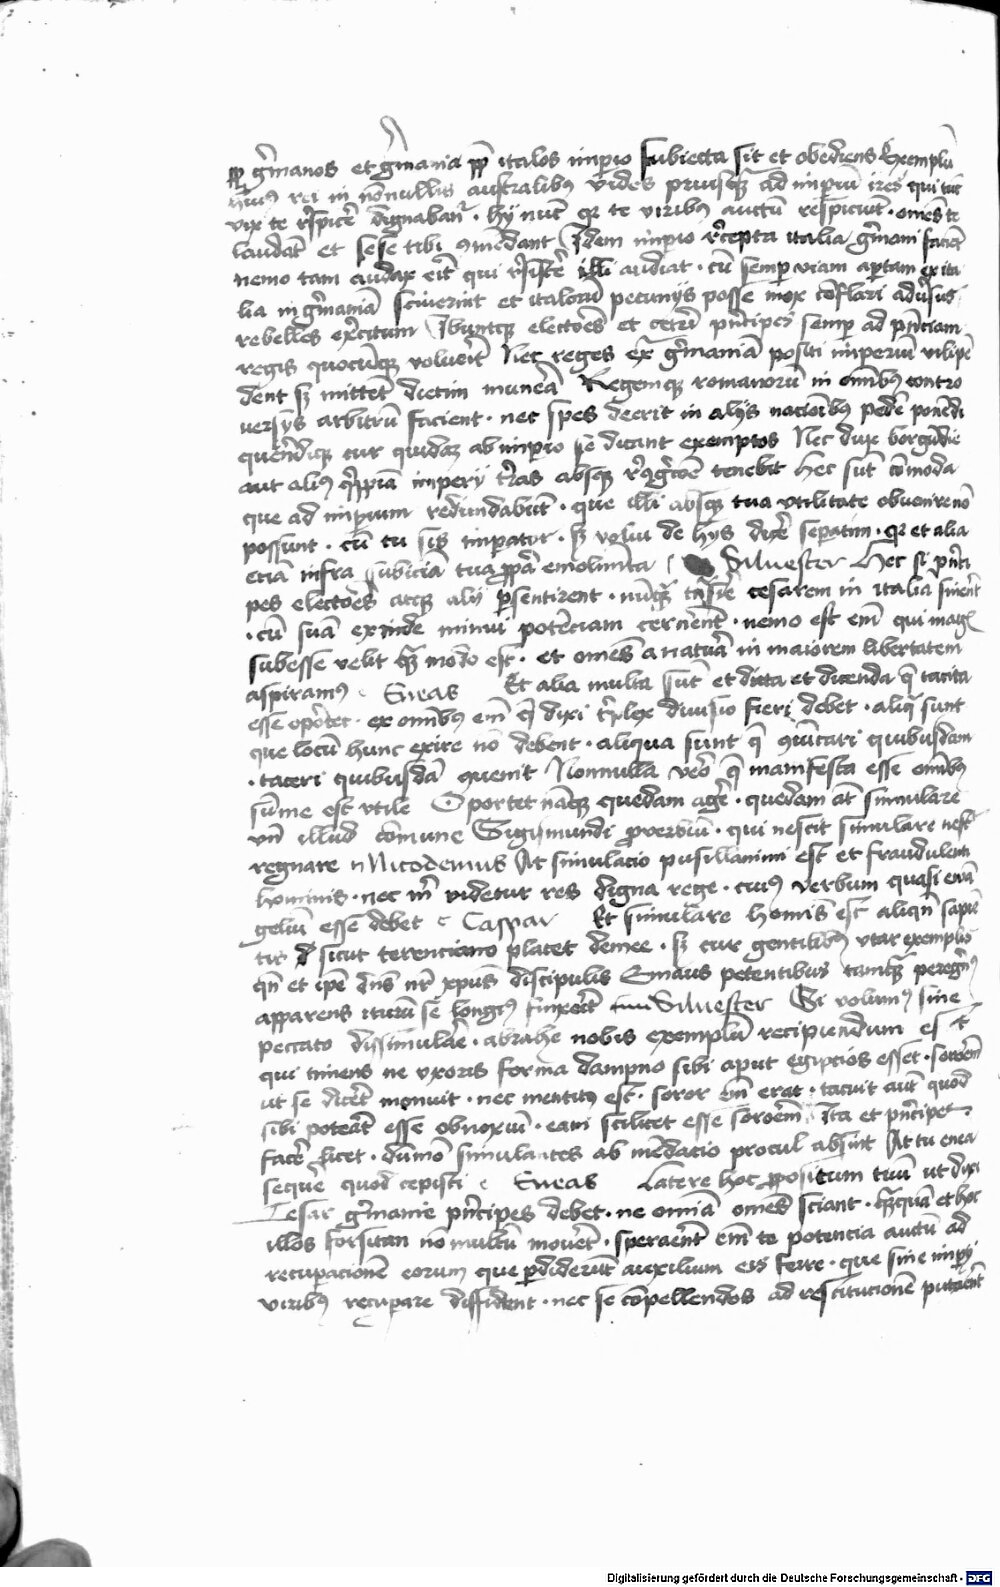 ꝓpꝑ gͬmanos et gͬmania ꝓpꝑ italos imꝑio subiecta sit et obediens Exemplū
huiꝰ rei in nōnullis australibꝰ vides priusqꝫ ad imꝑiū ires qui tūc
vix te respicē dignabanͬ · hÿ nūc qꝛ te viribꝰ auctū respiciūt · omēs te
laudāt et sese tibi ꝯmēdant Idem imꝑio recepta italia gͬmani faciēt
nemo tam audax eͥt qui resistͤe illi audiat · cū semꝑ viam aꝑtam ex ita
lia in gͬmaniā sciuerint et italorū pecunijs posse mox cōflari aduͤsus
rebelles exͤcitum Ibuntqꝫ electoēs et cetͤi pͥncipes semꝑ ad pͥnciam
regis quocūqꝫ voluerīt Nec reges extͣ gͬmaniā positi imperiū vilipē
dent sꝫ mittēt dietim munerā Regemqꝫ romanorū in omībꝰ contro
uersÿs arbitrū facient · nec spes deerit in alijs nacioībꝰ pedē ponēdi
querēdiqꝫ cur quidaꝫ ab imꝑio se dicant exemptos Nec dux borgūdie
aut aliꝰ qͥspiā imperÿ tͤras absqꝫ recognicōe tenebit Hec sūt cōmoda
que ad imꝑium redundabūt · que illi absqꝫ tua vtilitate obuenire nō
possunt · cū tu sis imꝑator · sꝫ volui de hÿs dicͤe seꝑatim · qꝛ et alia
eciā infra subiciā tua ꝓpͥa emolimēta Siluester Hec si pͥnci
pes electoēs atqꝫ alij ꝑsentirent · nūqͣ tͣnsire cesarem in italiā sinerēt
· cū suā exinde minui potēciam cernerēt · nemo est eͫ qui magͥ
subesse velit qͣꝫ modo est · et omēs a natuͣ in maiorem libertatem
aspiramꝰ Eneas Et alia multa sūt et dicta et dicenda q̄ tacita
esse opōtet · ex omībꝰ em̄ q̄ dixi tͥplex diuisio fieri debet · aliqͣ sunt
que locū hunc exire nō debent · aliqua sunt q̄ ꝯmūicari quibusdam
· taceri quibusdā ꝯuenit Nonnulla veͦ q̄ manifesta esse omībꝰ
sūme est vtile Oportet nāqꝫ quedam agͤe · quedam aūt simulare
vn̄ illud cōmune Sigismundi ꝓuerbiū · qui nescit simulare nescͭ
regnare Nicodemus At simulacio pusillanimi est et fraudulenti
hominis · nec mͥ videtur res digna rege · cuiꝰ verbum quasi euā
geliū esse debet Caspar Et simulare homīs est aliqn̄ sapiē
tis sicut terenciano placet demee · sꝫ cur gentilibꝰ vtar exemplis
qn̄ et ipē dn̄s nͬ xp̄us discipulis Emaus petentibus tamqͣꝫ peregͥnꝰ
apparens iturū se longiꝰ finxerit Siluester Si volumꝰ sine
peccato dissimulaͤ · abrahe nobis exemplū recipiendum est
qui timens ne vxoris forma dampno sibi aput egipcios esset · sororē
ut se dicͤet monuit · nec mentitꝰ est · soror em̄ erat · tacuit aūt quod
sibi poterāt esse obnoxiū · eam scilicet esse sororēm Ita et pͥncipes
facͤe licet · dūmō simulantes ab mēdacio procul absint At tu enea
sequͤe quod cepisti Eneas Latere hoc ꝓpositum tuū ut dixi
Cesar gͬmanie pͥncipes debet · ne omnīa omēs sciant · qͣꝫquā et hoc
illos forsitan nō multū mouͤet · sperarēnt em̄ te potencia auctū ad
recuꝑacionē eorum que ꝑdiderūt auxilium eis ferre · que sine imꝑij
viribꝰ recuꝑare diffidunt · nec se cōpellendos ad restitucionē putarent
Digitalisierung gefördert durch die Deutsche Forschungsgemeinschaft - DFG